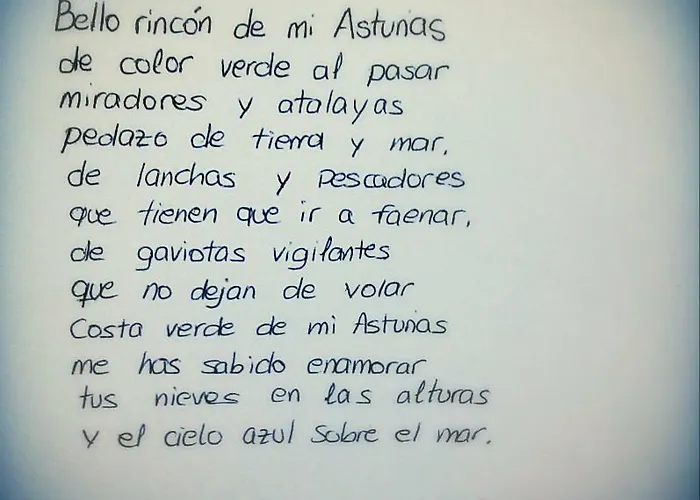 Bello rincón de mi Asturias
de color verde al pasar
miradores y atalayas
pedazo de tierra y mar,
de lanchas y pescadores
que tienen que ir a faenar,
de gaviotas vigilantes
que no dejan de volar
Costa verde de mi Asturias
me has sabido enamorar
tus nieves en las alturas
y el cielo azul sobre el mar.